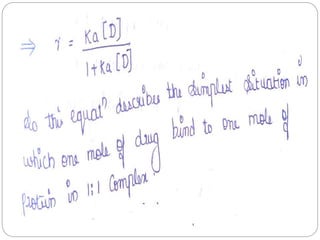 ⇒ r = Ka [D]
1 + Ka [D]
So this equaⁿ describes the simplest situation in
which one mole of drug bind to one mole of
protein in 1:1 complex.